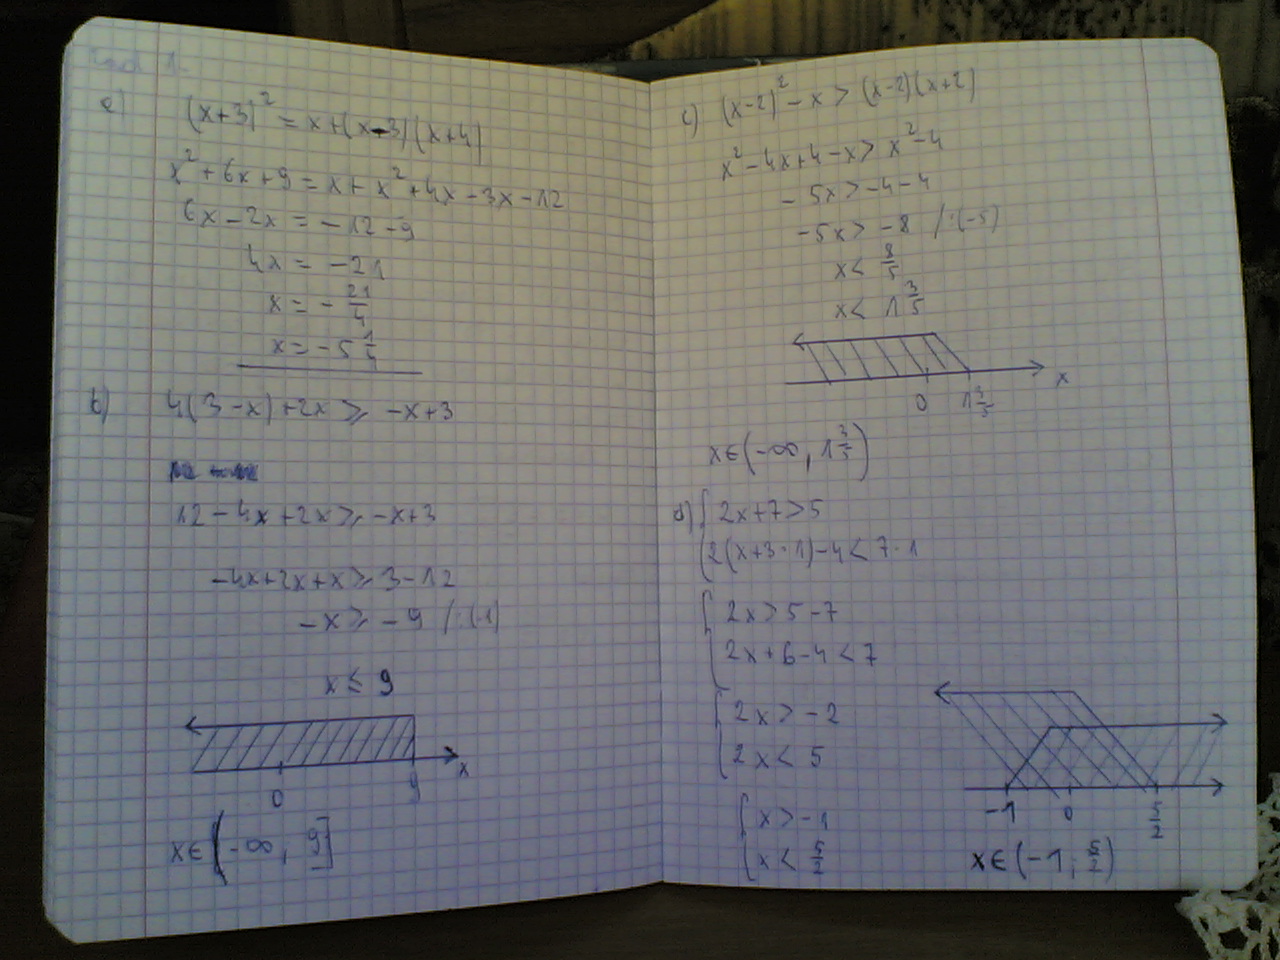 Zad 1.
a) (x+3)² = x+(x-3)(x+4)
x²+6x+9 = x+x²+4x-3x-12
6x-2x = -12-9
4x = -21
x = -21/4
x = -5 1/4
b) 4(3-x)+2x ≥ -x+3
12-4x+2x ≥ -x+3
-4x+2x+x ≥ 3-12
-x ≥ -9 /:(-1)
x ≤ 9
x
0 9
x∈(-∞, 9]
c) (x-2)²-x > (x-2)(x+2)
x²-4x+4-x > x²-4
-5x > -4-4
-5x > -8 /:(-5)
x < 8/5
x < 1 3/5
x
0 1 3/5
x∈(-∞, 1 3/5)
d) { 2x+7>5
2(x+3·1)-4 < 7·1
{ 2x > 5-7
2x+6-4 < 7
{ 2x > -2
2x < 5
{ x > -1
x < 5/2
-1 0 5/2
x∈(-1; 5/2)